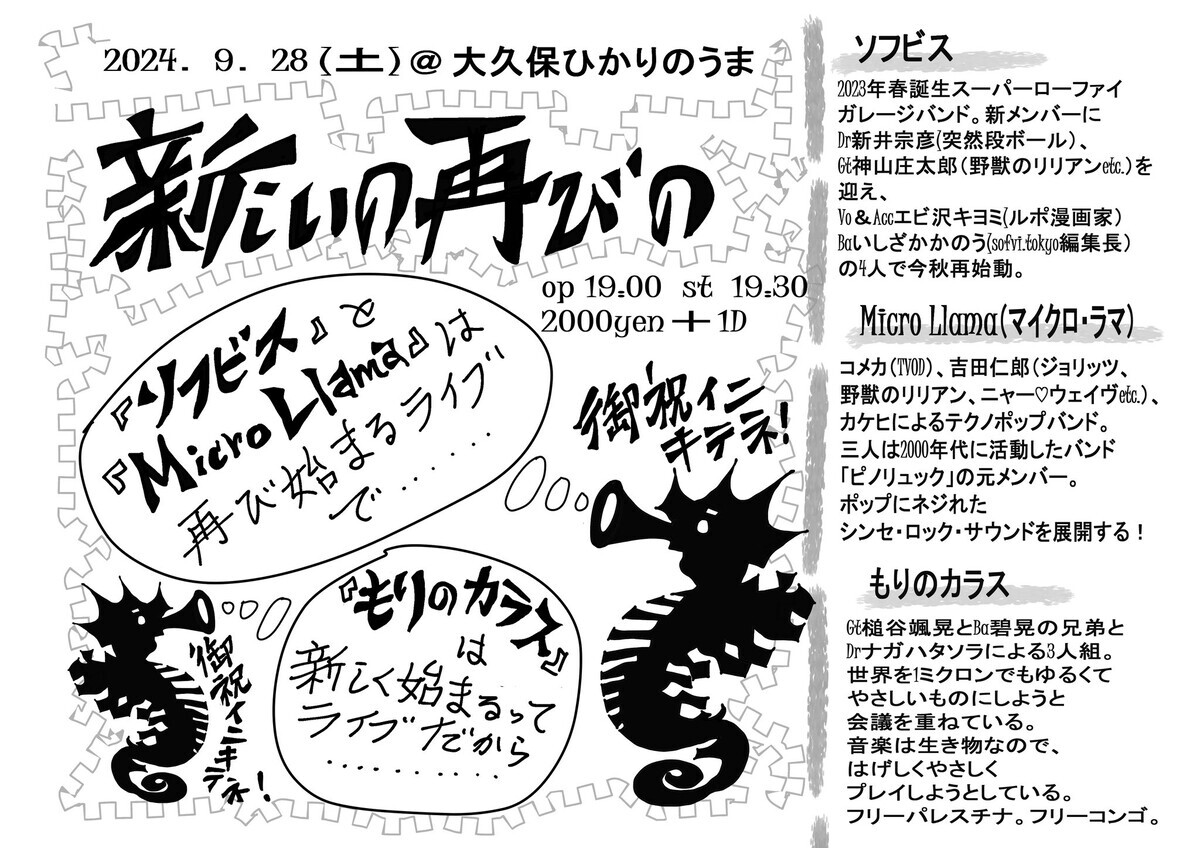 2024. 9. 28(土)@大久保ひかりのうま
新しいの再びの
op 19:00 st 19:30
2000yen+1D
『ソフビス』と
『Micro Llama』は
再び始まるライブ
で........
御祝イニ
キテネ!
『もりのカラス』
は
新しく始まるって
ライブだから
............
御祝イニキテネ!
ソフビス
2023年春誕生スーパーローファイ
ガレージバンド。新メンバーに
Dr新井宗彦(突然段ボール)、
Gt神山庄太郎(野獣のリリアンetc.)を
迎え、
Vo&Accエビ沢キヨミ(ルポ漫画家)
Baいしざかかのう(sofvi.tokyo編集長)
の4人で今秋再始動。
Micro Llama(マイクロ・ラマ)
コメカ(TVOD)、吉田仁郎(ジョリッツ、
野獣のリリアン、ニャー♡ウェイヴetc.)、
カケヒによるテクノポップバンド。
三人は2000年代に活動したバンド
「ピノリュック」の元メンバー。
ポップにネジれた
シンセ・ロック・サウンドを展開する!
もりのカラス
Gt槌谷颯晃とBa碧晃の兄弟と
Drナガハタソラによる3人組。
世界を1ミクロンでもゆるくて
やさしいものにしようと
会議を重ねている。
音楽は生き物なので、
はげしくやさしく
プレイしようとしている。
フリーパレスチナ。フリーコンゴ。